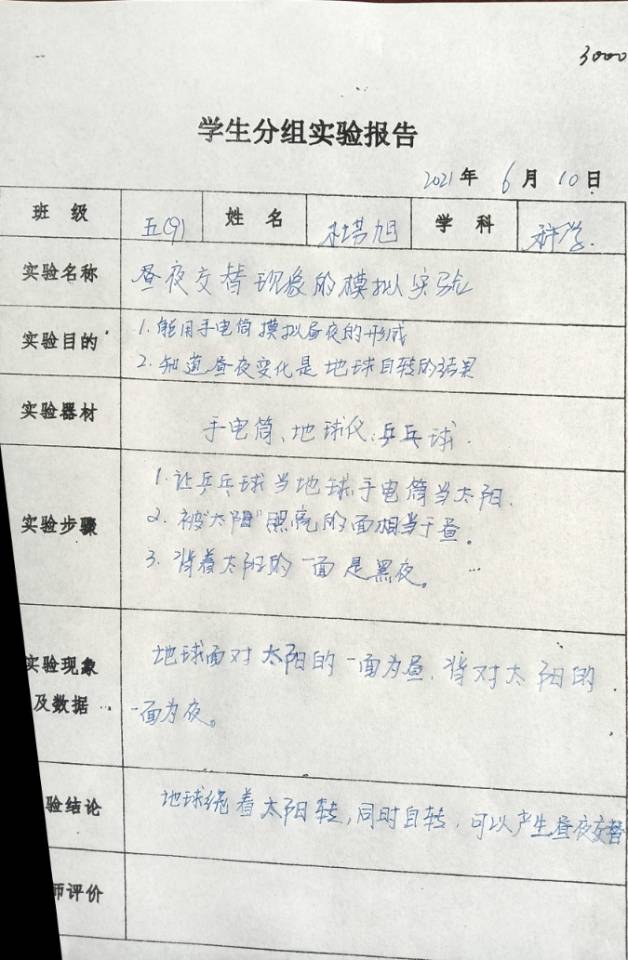 3000
学生分组实验报告
2021年 6月 10日
班 级 五(9) 姓 名 杜 旭 学 科 科学.
实验名称 昼夜交替现象的模拟实验
实验目的 1. 能用手电筒模拟昼夜的形成
2. 知道昼夜变化是地球自转的结果
实验器材 手电筒、地球仪、乒乓球.
实验步骤 1. 让乒乓球当地球手电筒当太阳.
2. 被"太阳"照亮的面相当于昼。
3. 背着太阳的一面是黑夜。
实验现象 地球面对太阳的一面为昼,背对太阳的
及数据 一面为夜。
验结论 地球绕着太阳转,同时自转,可以产生昼夜交替
师评价